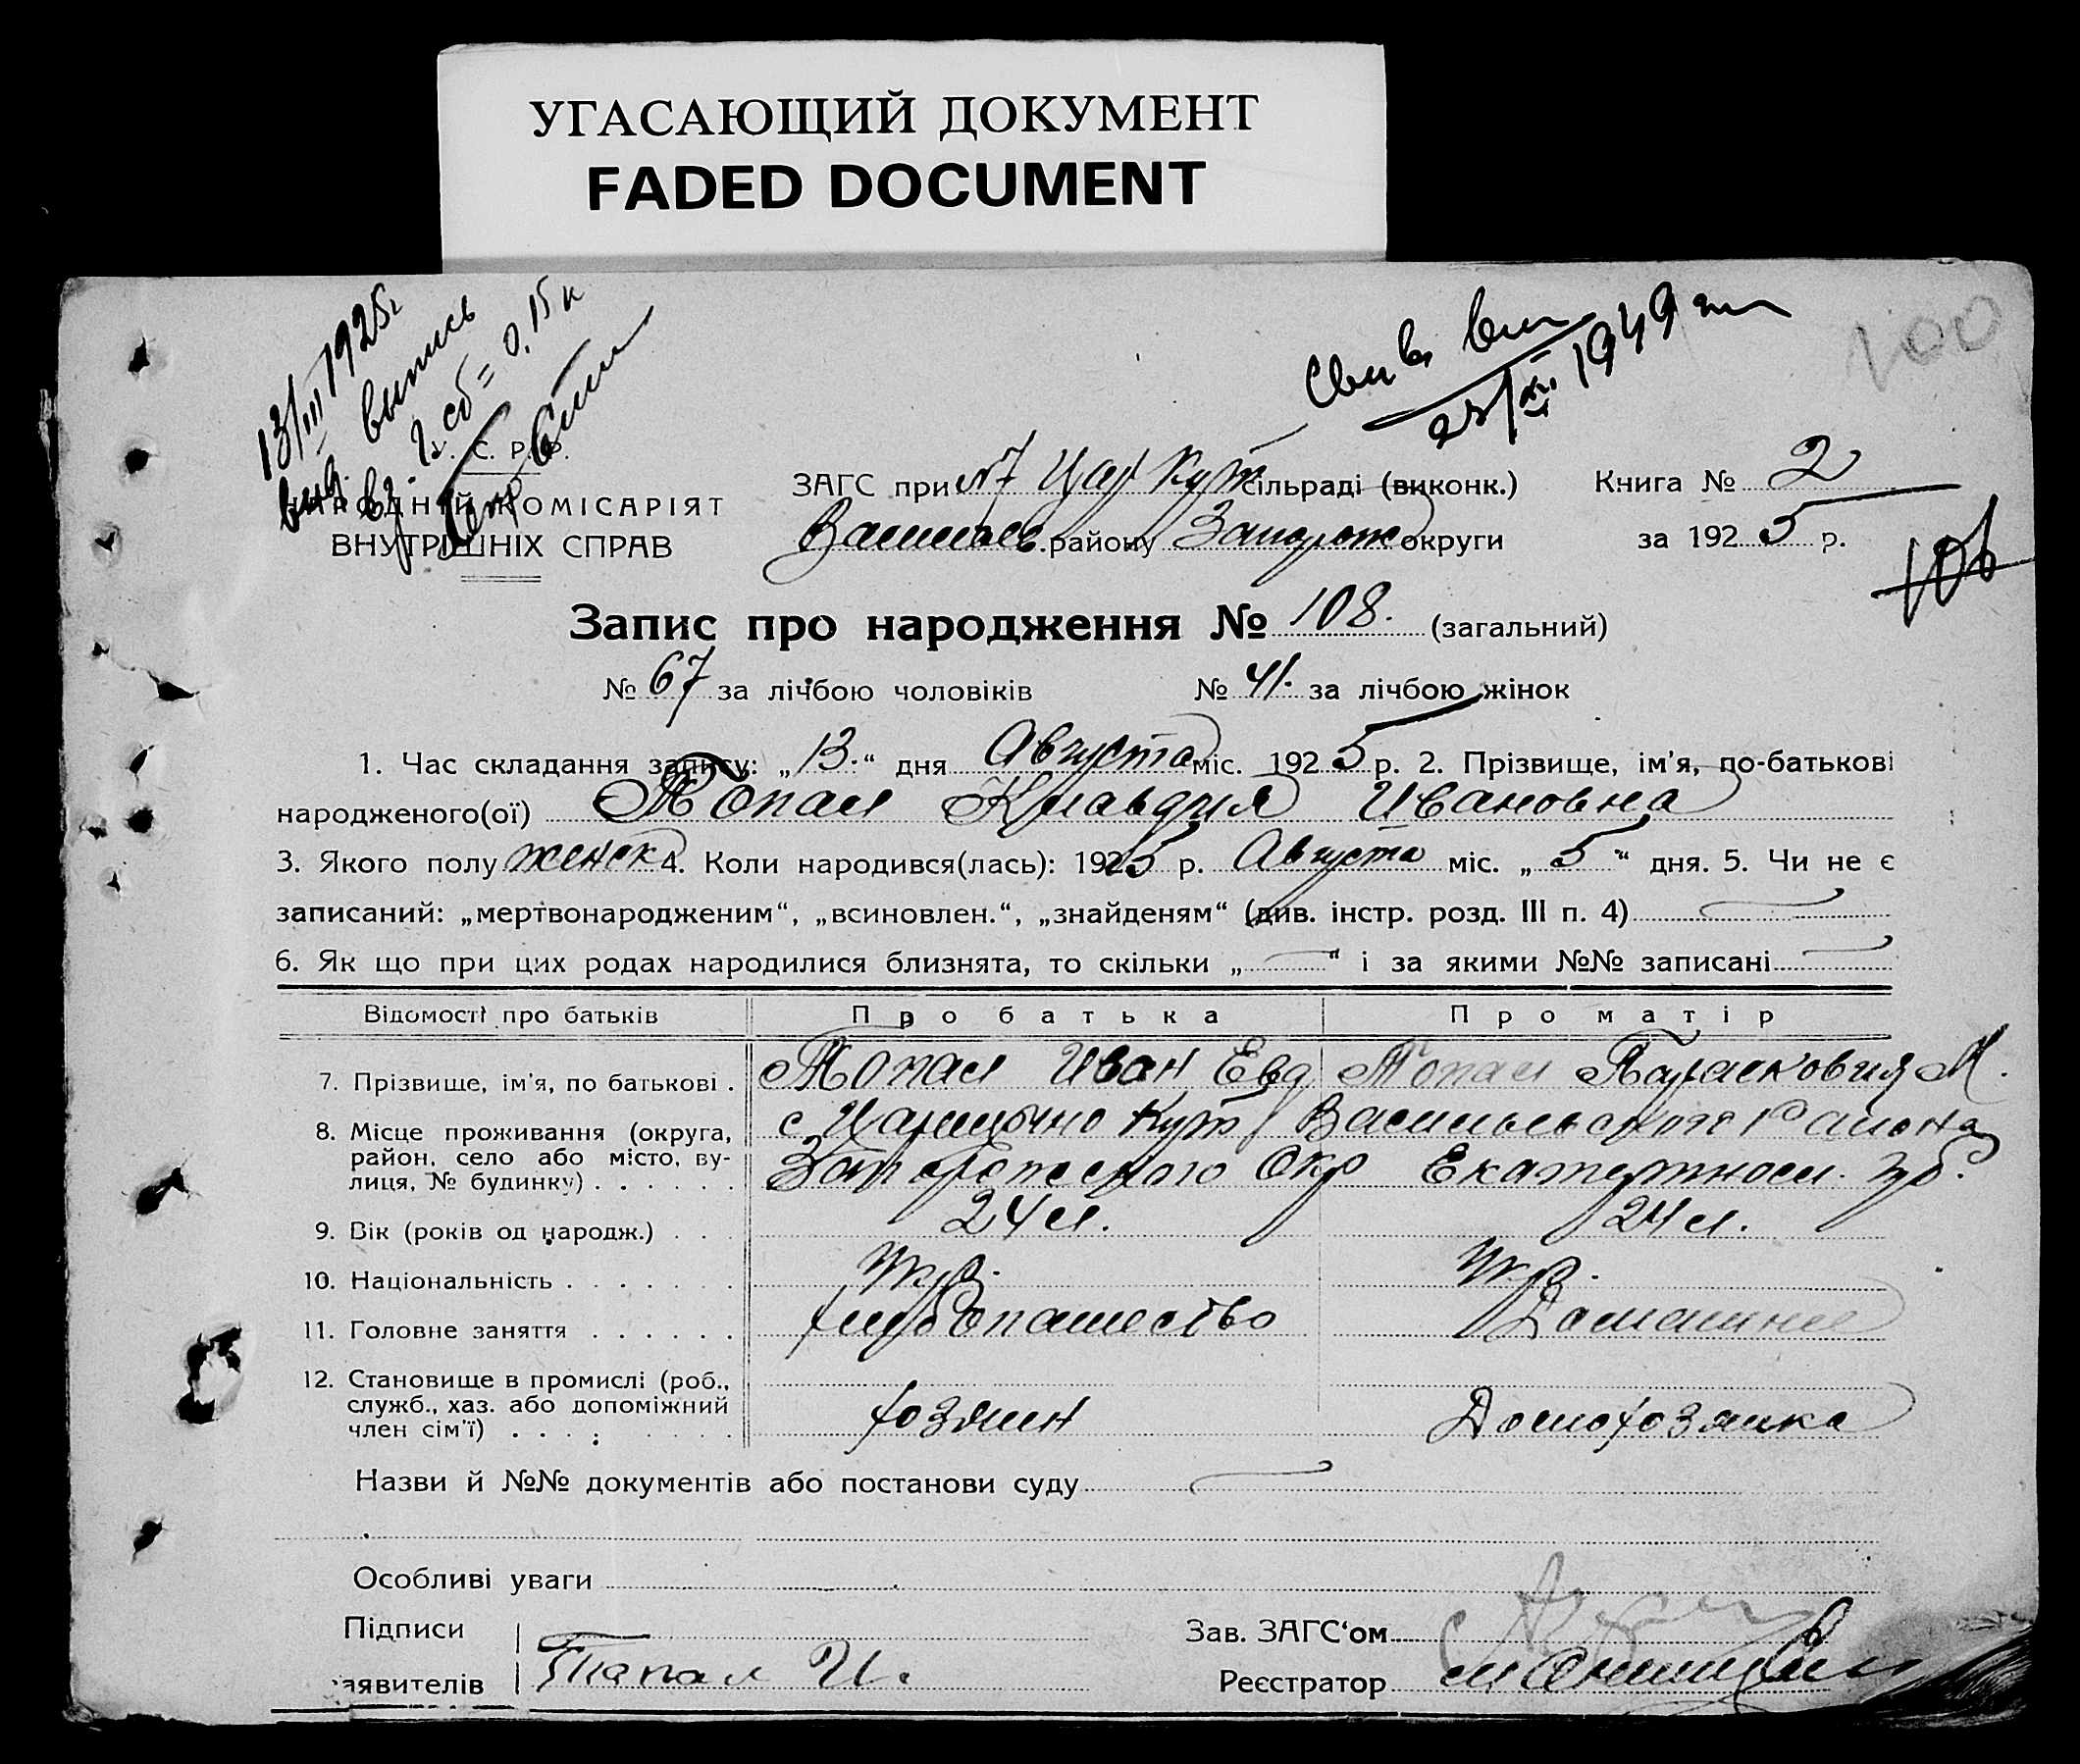 УГАСАЮЩИЙ ДОКУМЕНТ
FADED DOCUMENT
13/III 1925г
выд. выпись
вз. г. сб = 0,15 к
Свид. выд
23/XII 1949
100
У. С. Р. Р.
НАРОДНИЙ КОМІСАРІЯТ
ВНУТРІШНІХ СПРАВ
ЗАГС при №7 Цар Кут сільраді (виконк.)
Васильев. району Запорож округи
Книга № 2
за 1925 р.
106
Запис про народження № 108. (загальний)
№ 67 за лічбою чоловіків № 41. за лічбою жінок
1. Час складання запису: „13.“ дня Августа міс. 1925 р. 2. Прізвище, ім’я, по-батькові
народженого(ої) Топал Клавдия Ивановна
3. Якого полу женск 4. Коли народився(лась): 1925 р. Августа міс. „5“ дня. 5. Чи не є
записаний: „мертвонародженим“, „всиновлен.“, „знайденям“ (див. інстр. розд. III п. 4)
6. Як що при цих родах народилися близнята, то скільки „—“ і за якими №№ записані
Відомості про батьків Про батька Про матір
7. Прізвище, ім’я, по батькові . Топал Иван Евд Топал Парасковия М.
8. Місце проживання (округа, с. Царицыно Кут Васильевского Района
район, село або місто, ву-
лиця, № будинку) . . . . . . Запорожского Окр Екатериносл. губ.
9. Вік (років од народж.) . . . 24 л. 24 л.
10. Національність . . . . . . . Укр. Укр.
11. Головне заняття . . . . . . хлебопашество Домашнее
12. Становище в промислі (роб.,
служб., хаз. або допоміжний хозяин Домохозяйка
член сім’ї) . . . . . . . .
Назви й №№ документів або постанови суду
Особливі уваги
Підписи Зав. ЗАГС‘ом
заявителів Топал И. Реєстратор